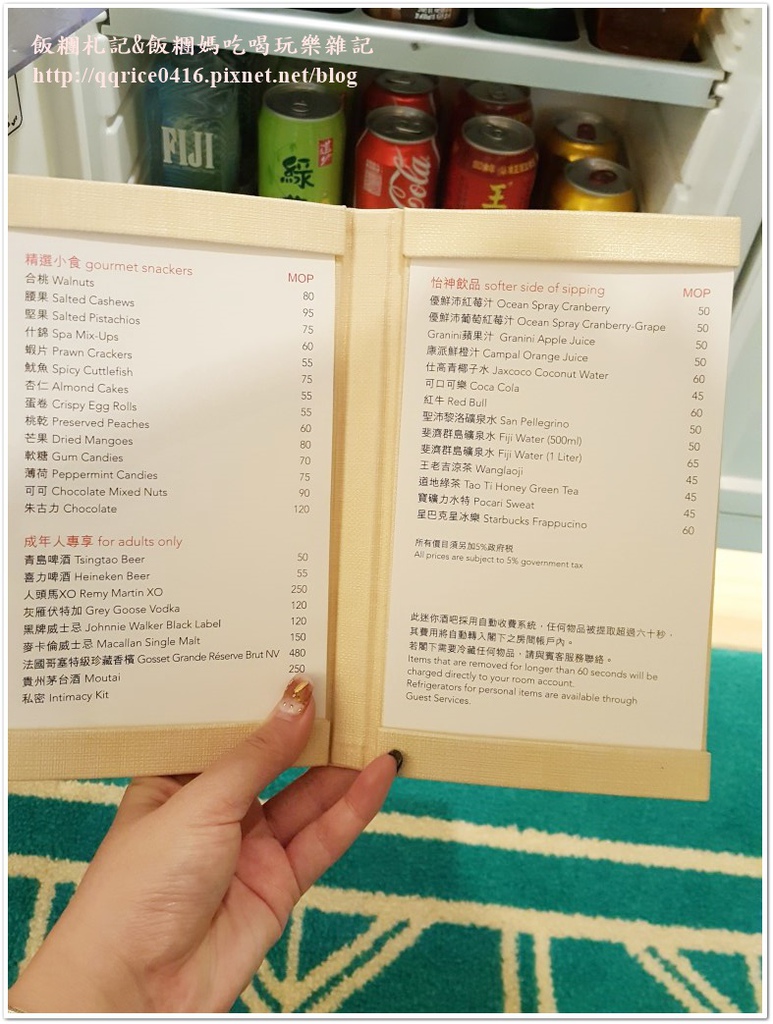 飯糰札記&飯糰媽吃喝玩樂雜記
http://qqrice0416.pixnet.net/blog
FIJI
綠
道地
Coca-Cola
王
精選小食 gourmet snackers MOP
合桃 Walnuts 80
腰果 Salted Cashews 95
堅果 Salted Pistachios 75
什錦 Spa Mix-Ups 60
蝦片 Prawn Crackers 55
魷魚 Spicy Cuttlefish 75
杏仁 Almond Cakes 55
蛋卷 Crispy Egg Rolls 55
桃乾 Preserved Peaches 60
芒果 Dried Mangoes 80
軟糖 Gum Candies 70
薄荷 Peppermint Candies 75
可可 Chocolate Mixed Nuts 90
朱古力 Chocolate 120
成年人專享 for adults only
青島啤酒 Tsingtao Beer 50
喜力啤酒 Heineken Beer 55
人頭馬XO Remy Martin XO 250
灰雁伏特加 Grey Goose Vodka 120
黑牌威士忌 Johnnie Walker Black Label 120
麥卡倫威士忌 Macallan Single Malt 150
法國哥塞特級珍藏香檳 Gosset Grande Réserve Brut NV 480
貴州茅台酒 Moutai 250
私密 Intimacy Kit
怡神飲品 softer side of sipping MOP
優鮮沛紅莓汁 Ocean Spray Cranberry 50
優鮮沛葡萄紅莓汁 Ocean Spray Cranberry-Grape 50
Granini蘋果汁 Granini Apple Juice 50
康派鮮橙汁 Campal Orange Juice 50
仕高青椰子水 Jaxcoco Coconut Water 60
可口可樂 Coca Cola 45
紅牛 Red Bull 60
聖沛黎洛礦泉水 San Pellegrino 50
斐濟群島礦泉水 Fiji Water (500ml) 50
斐濟群島礦泉水 Fiji Water (1 Liter) 65
王老吉涼茶 Wanglaoji 45
道地綠茶 Tao Ti Honey Green Tea 45
寶礦力水特 Pocari Sweat 45
星巴克星冰樂 Starbucks Frappucino 60
所有價目須另加5%政府稅
All prices are subject to 5% government tax
此迷你酒吧採用自動收費系統，任何物品被提取超過六十秒，
其費用將自動轉入閣下之房間帳戶內。
若閣下需要冷藏任何物品，請與賓客服務聯絡。
Items that are removed for longer than 60 seconds will be
charged directly to your room account.
Refrigerators for personal items are available through
Guest Services.